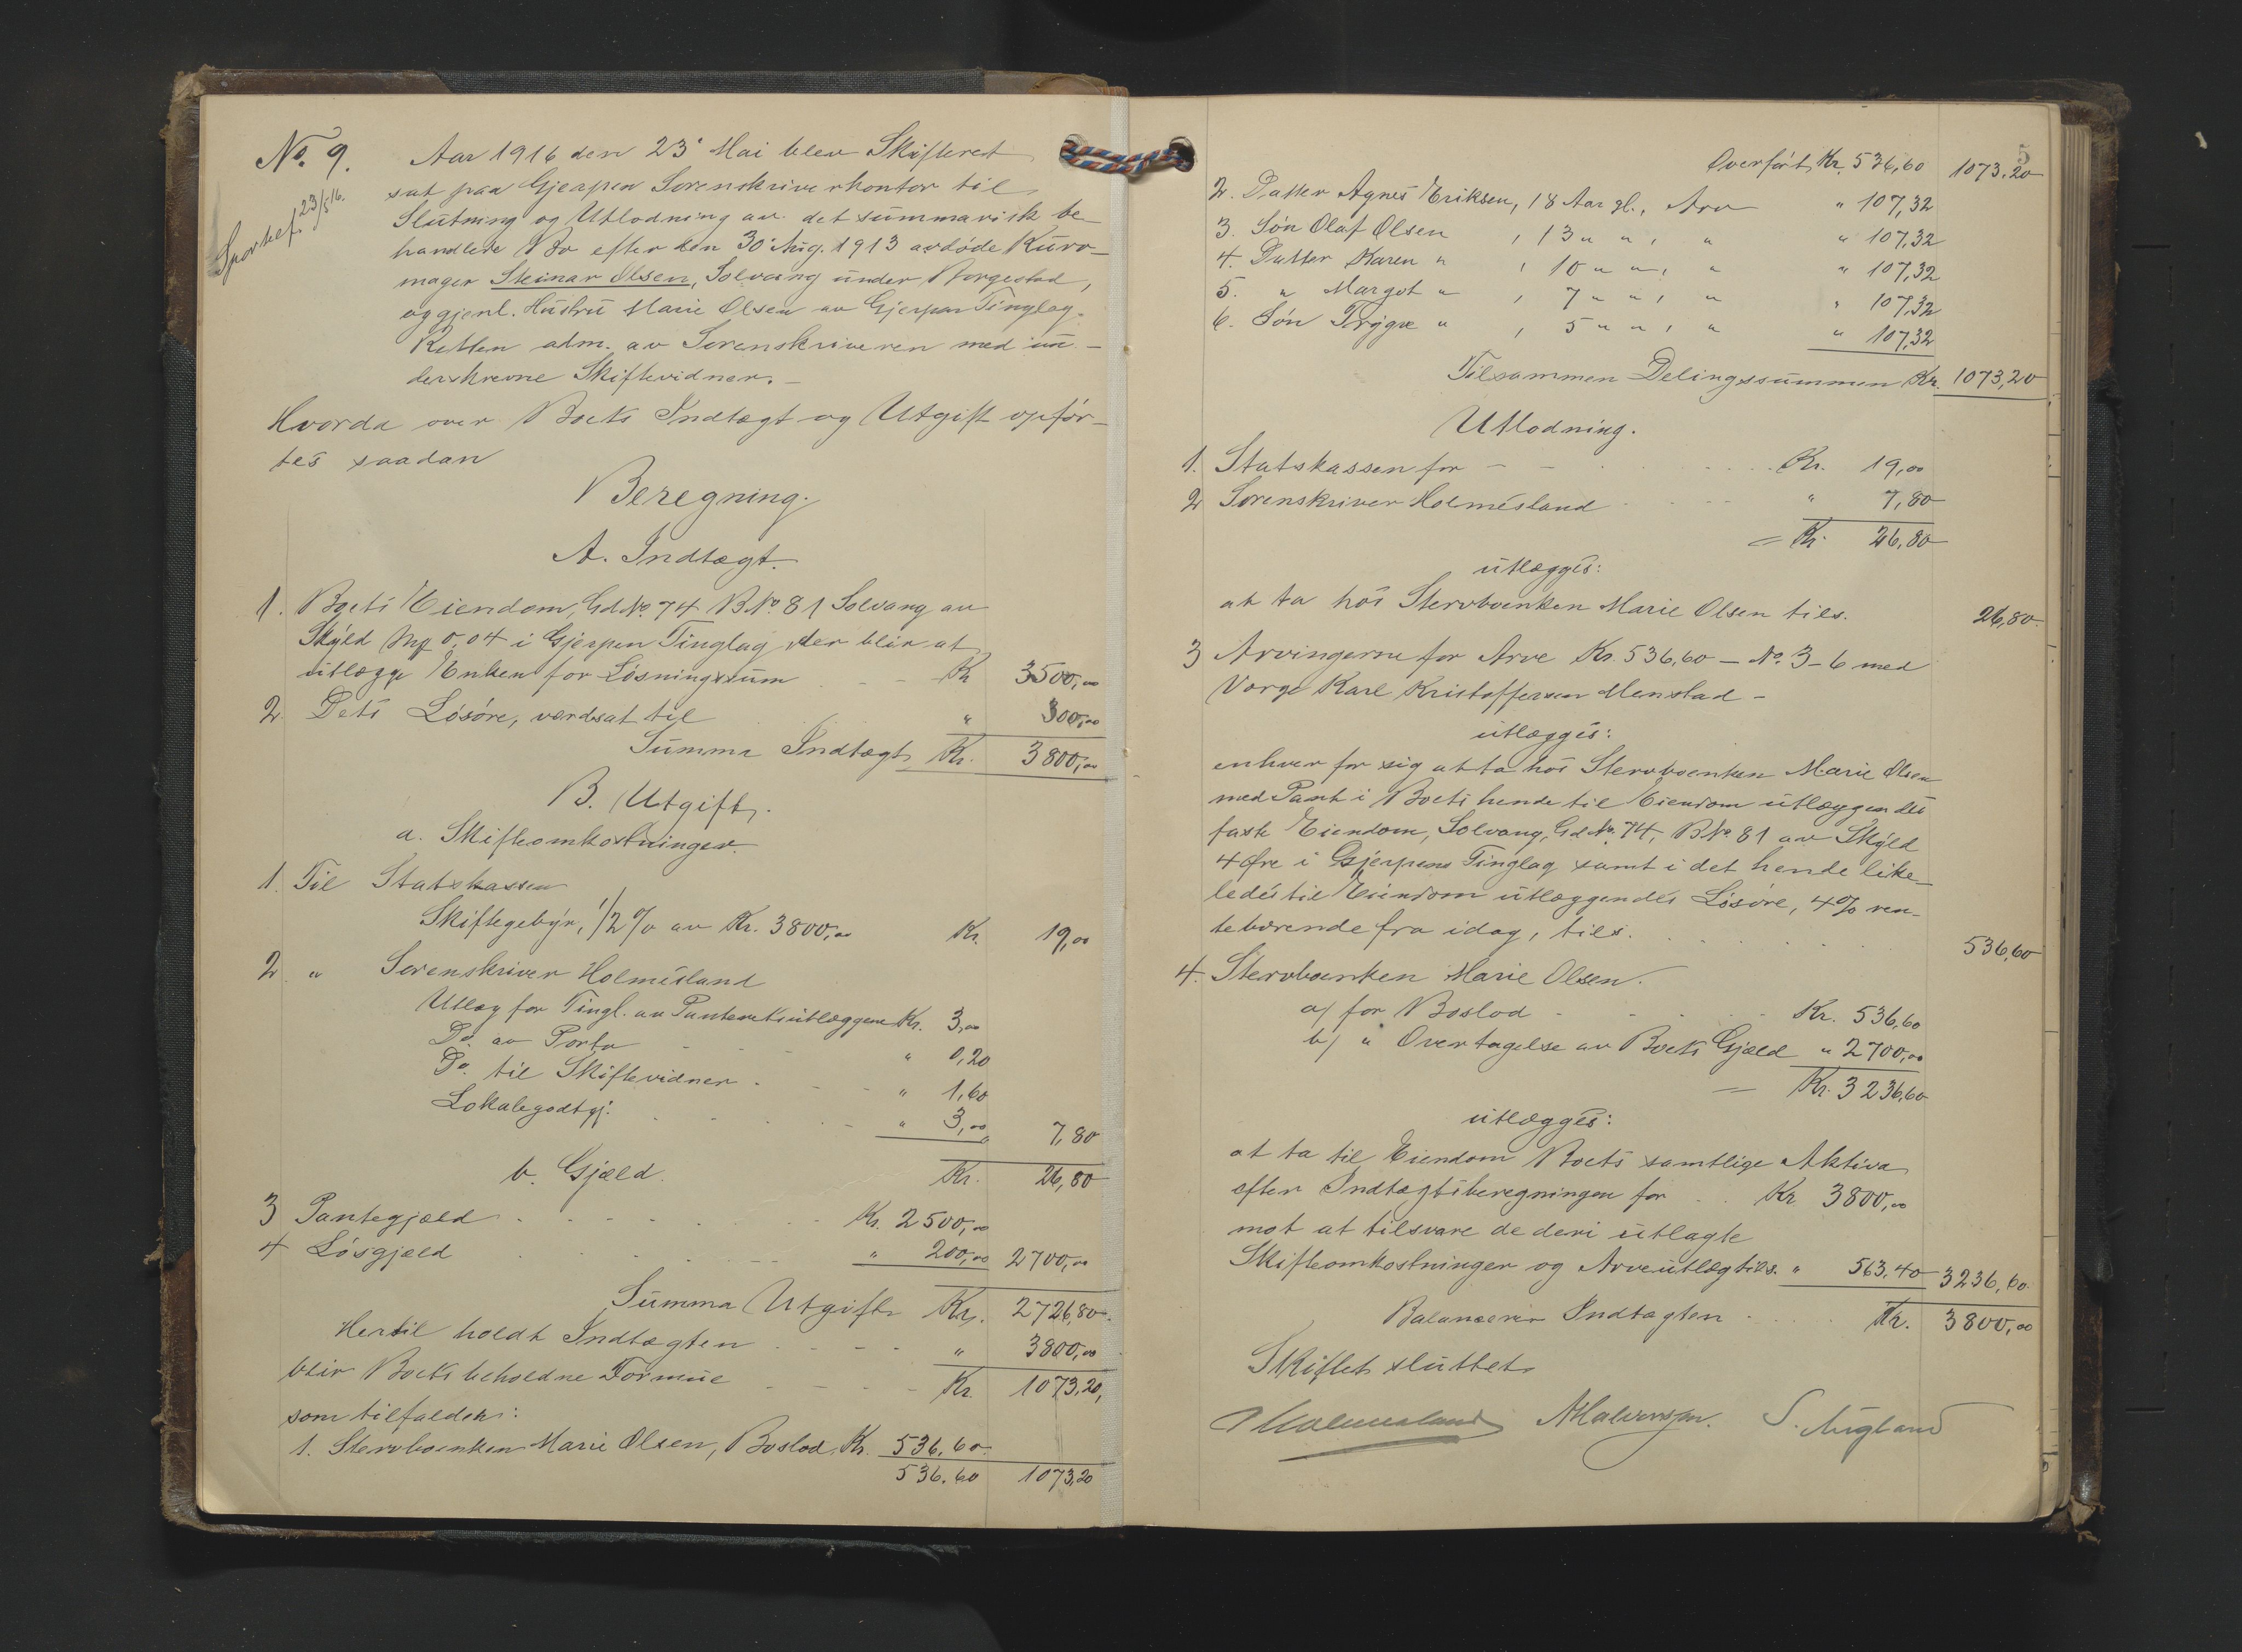 No. 9.
Sporhef. 23/5 16.
Aar 1916 den 23' Mai blev Skifteret
sat paa Gjerpen Sorenskriverkontor til
Slutning og Utlodning av det summarisk be-
handlede Bo efter den 30' Aug. 1913 avdøde Kurv-
mager Steinar Olsen, Solvang under Borgestad,
og gjenl. Hustru Marie Olsen av Gjerpen Tinglag.
Retten adm. av Sorenskriveren med un-
derskrevne Skiftevidner. -
Hvorda over Boets Indtægt og Utgift opfør-
tes saadan
Beregning.
A. Indtægt.
1. Boets Eiendom, Gd. No. 74 B. No. 81 Solvang av
Skyld Mg 0,04 i Gjerpen Tinglag, der blir at
utlægge Enken for Løsningssum Kr 3500,00
2. Dets Løsøre, værdsat til " 300,00
Summa Indtægt Kr. 3800,00
B. Utgift.
a. Skifteomkostninger.
1. Til Statskassen
Skiftegebyr, 1/2 % av Kr. 3800,00 Kr. 19,00
2. " Sorenskriver Holmesland
Utlæg for Tingl. av Panteretsutlæggene Kr. 3,00
Do. av Porto " 0,20
Do. til Skiftevidner " 1,60
Lokalegodtgj. " 3,00 " 7,80
Kr. 26,80
b. Gjæld.
3 Pantegjæld Kr. 2500,00
4 Løsgjæld " 200,00 2700,00
Summa Utgift Kr. 2726,80
Hertil holdt Indtægten " 3800,00
blir Boets beholdne Formue Kr. 1073,20,
som tilfalder:
1. Stervboenken Marie Olsen, Boslod Kr. 536,60
536.60 1073,20
5
Overført Kr. 536,60 1073,20
2. Datter Agnes Eriksen, 18 Aar gl., Arv " 107,32
3. Søn Olaf Olsen , 13 " " , " " 107,32
4. Datter Karen " , 10 " " , " " 107,32
5. " Margot " , 7 " " , " " 107,32
6. Søn Trygve " , 5 " " , " " 107,32
Tilsammen Delingssummen Kr. 1073,20
Utlodning.
1. Statskassen for Kr. 19,00
2 Sorenskriver Holmesland " 7,80
= Kr. 26,80
utlægges:
at ta hos Stervboenken Marie Olsen tils. 26,80
3 Arvingerne for Arve Kr. 536,60 - No. 3-6 med
Værge Karl Kristoffersen Menstad -
utlægges:
enhver for sig at ta hos Stervboenken Marie Olsen
med Pant i Boets hende til Eiendom utlæggendes
faste Eiendom, Solvang, Gd. No. 74, B No. 81 av Skyld
4 Øre i Gjerpens Tinglag samt i det hende like-
ledes til Eiendom utlæggendes Løsøre, 4% ren-
tebærende fra idag, tils. 536,60
4. Stervboenken Marie Olsen.
a/ for Boslod Kr. 536,60
b/ " Overtagelse av Boets Gjæld " 2700,00
= Kr. 3236,60
utlægges:
at ta til Eiendom Boets samtlige Aktiva
efter Indtægtsberegningen for Kr. 3800,00
mot at tilsvare de deri utlagte
Skifteomkostninger og Arveutlæg tils. " 563.40 3236,60
Balancerer Indtægten Kr. 3800,00
Skiftet sluttet
Holmesland AHalvorsen. S. Augland